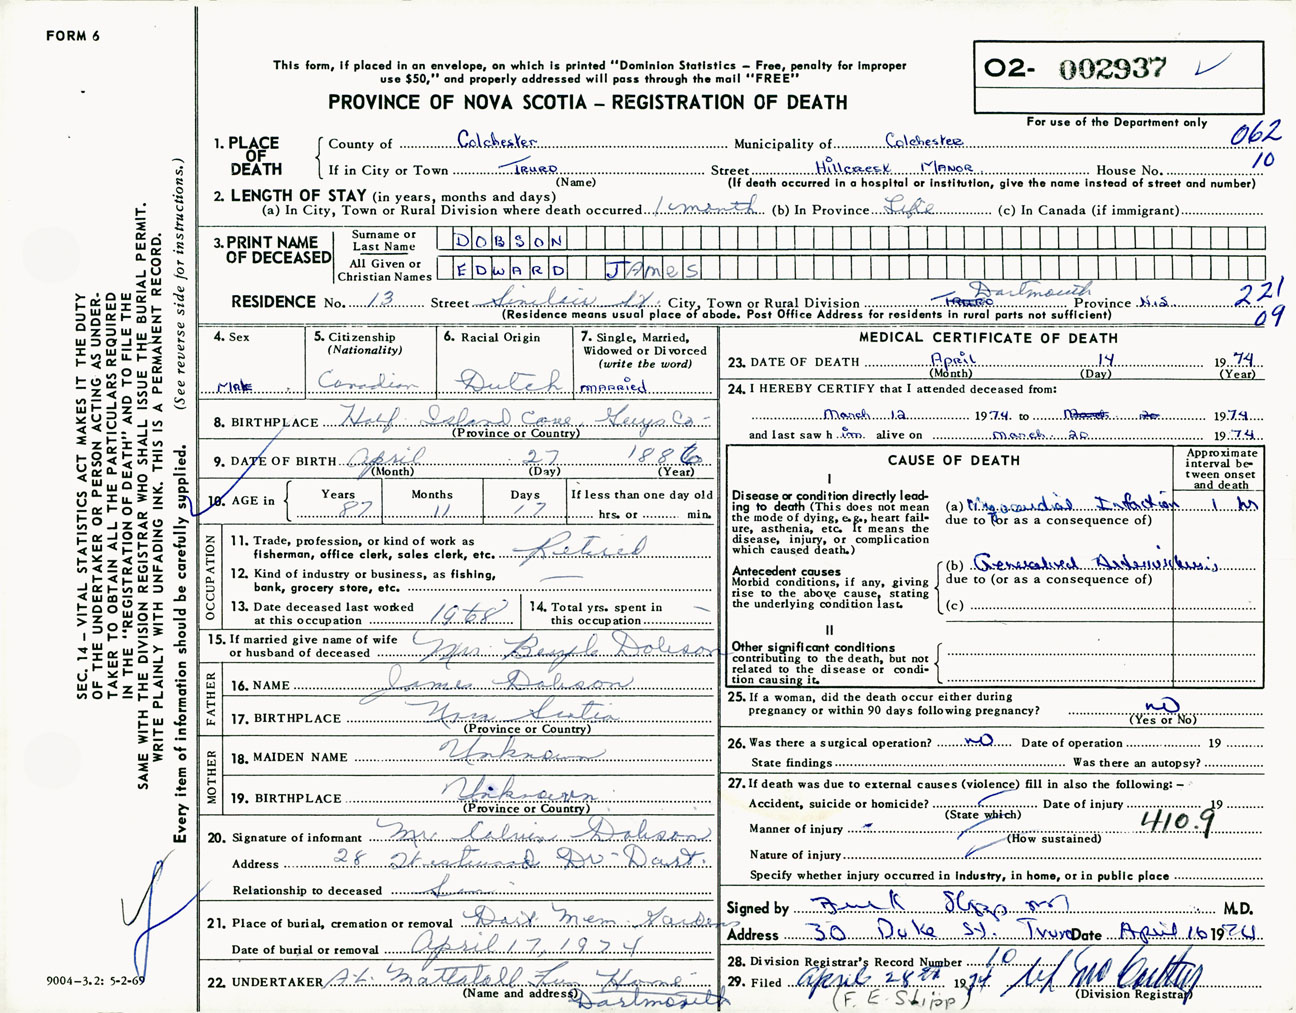 FORM 6
This form, if placed in an envelope, on which is printed "Dominion Statistics – Free, penalty for improper
use $50," and properly addressed will pass through the mail "FREE"
PROVINCE OF NOVA SCOTIA – REGISTRATION OF DEATH
02- 002937
For use of the Department only
062
10
1. PLACE OF DEATH
County of Colchester Municipality of Colchester
If in City or Town TRURO Street Hillcrest MANOR House No.
(Name) (If death occurred in a hospital or institution, give the name instead of street and number)
2. LENGTH OF STAY (in years, months and days)
(a) In City, Town or Rural Division where death occurred 1 month (b) In Province Life (c) In Canada (if immigrant)
3. PRINT NAME OF DECEASED
Surname or Last Name DOBSON
All Given or Christian Names EDWARD JAMES
RESIDENCE No. 13 Street Sinclair St. City, Town or Rural Division TRURO Dartmouth Province N.S
(Residence means usual place of abode. Post Office Address for residents in rural parts not sufficient)
221
09
4. Sex
Male
5. Citizenship
(Nationality)
Canadian
6. Racial Origin
Dutch
7. Single, Married,
Widowed or Divorced
(write the word)
MARRIED
8. BIRTHPLACE Half Island Cove, Guys Co-
(Province or Country)
9. DATE OF BIRTH April 27 1886
(Month) (Day) (Year)
10. AGE in
Years Months Days If less than one day old
87 11 17 hrs. or min.
OCCUPATION
11. Trade, profession, or kind of work as
fisherman, office clerk, sales clerk, etc. Retired
12. Kind of industry or business, as fishing,
bank, grocery store, etc. —
13. Date deceased last worked
at this occupation 1968
14. Total yrs. spent in
this occupation –
15. If married give name of wife
or husband of deceased Mrs. Dobson
FATHER
16. NAME James Dobson
17. BIRTHPLACE Nova Scotia
(Province or Country)
MOTHER
18. MAIDEN NAME Unknown
19. BIRTHPLACE Unknown
(Province or Country)
20. Signature of informant Mr. Calvin Dobson
Address 28 Dr- Dart.
Relationship to deceased Son
21. Place of burial, cremation or removal Dart. Mem. Gardens
Date of burial or removal April 17, 1974
22. UNDERTAKER A.L. Mattatall Fun Home
(Name and address) Dartmouth
MEDICAL CERTIFICATE OF DEATH
23. DATE OF DEATH April 14 1974
(Month) (Day) (Year)
24. I HEREBY CERTIFY that I attended deceased from:
March 12 1974 to March 20 1974
and last saw him alive on March 20 1974
CAUSE OF DEATH
Approximate
interval be-
tween onset
and death
I
Disease or condition directly lead-
ing to death (This does not mean
the mode of dying, e.g., heart fail-
ure, asthenia, etc. It means the
disease, injury, or complication
which caused death.)
(a) Myocardial Infarction 1 hr
due to (or as a consequence of)
Antecedent causes
Morbid conditions, if any, giving
rise to the above cause, stating
the underlying condition last.
(b) Generalized
due to (or as a consequence of)
(c)
II
Other significant conditions
contributing to the death, but not
related to the disease or condi-
tion causing it.
25. If a woman, did the death occur either during
pregnancy or within 90 days following pregnancy? no
(Yes or No)
26. Was there a surgical operation? no Date of operation 19
State findings Was there an autopsy?
27. If death was due to external causes (violence) fill in also the following: –
Accident, suicide or homicide? Date of injury 19
(State which)
Manner of injury 410.9
(How sustained)
Nature of injury
Specify whether injury occurred in industry, in home, or in public place
Signed by M.D.
Address 30 Duke St. Truro Date April 16 1974
28. Division Registrar's Record Number 10
29. Filed April 28th 1974
(Division Registrar)
(F. E. Slipp)
SEC. 14 – VITAL STATISTICS ACT MAKES IT THE DUTY
OF THE UNDERTAKER OR PERSON ACTING AS UNDER-
TAKER TO OBTAIN ALL THE PARTICULARS REQUIRED
IN THE "REGISTRATION OF DEATH" AND TO FILE THE
SAME WITH THE DIVISION REGISTRAR WHO SHALL ISSUE THE BURIAL PERMIT.
WRITE PLAINLY WITH UNFADING INK. THIS IS A PERMANENT RECORD.
Every item of Information should be carefully supplied. (See reverse side for instructions.)
9004-3.2: 5-2-69